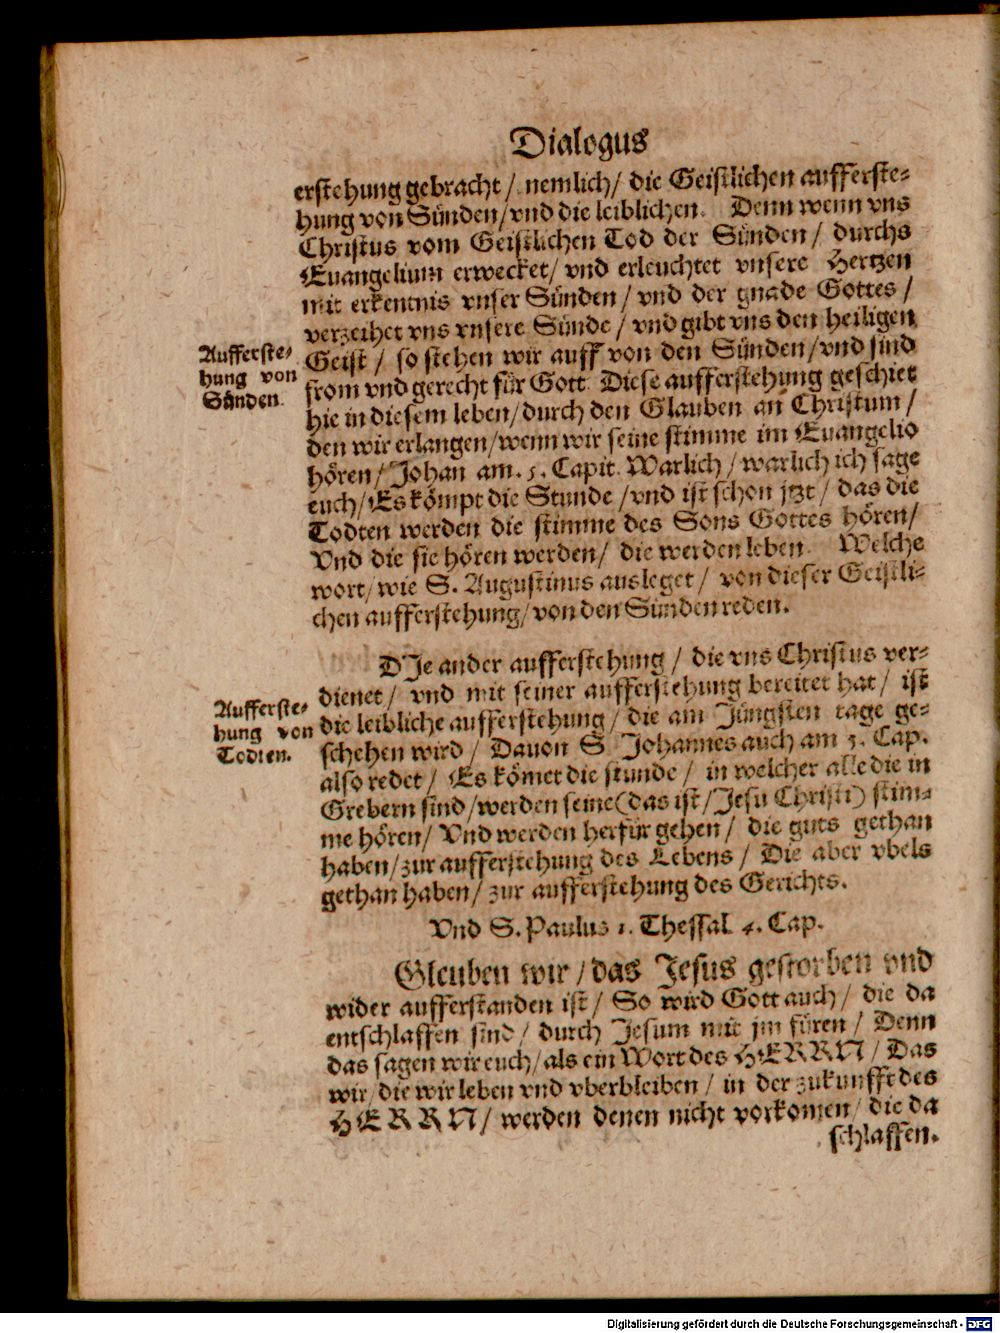 Dialogus
erstehung gebracht / nemlich / die Geistlichen aufferste-
hung von Sünden / vnd die leiblichen. Denn wenn vns
Christus vom Geistlichen Tod der Sünden / durchs
Euangelium erwecket / vnd erleuchtet vnsere Hertzen
mit erkentnis vnser Sünden / vnd der gnade Gottes /
verzeihet vns vnsere Sünde / vnd gibt vns den heiligen
Geist / so stehen wir auff von den Sünden / vnd sind
from vnd gerecht für Gott. Diese aufferstehung geschiet
hie in diesem leben / durch den Glauben an Christum /
den wir erlangen / wenn wir seine stimme im Euangelio
hören / Johan am. 5. Capit. Warlich / warlich ich sage
euch / Es kömpt die Stunde / vnd ist schon jtzt / das die
Todten werden die stimme des Sons Gottes hören /
Vnd die sie hören werden / die werden leben. Welche
wort / wie S. Augustinus ausleget / von dieser Geistli-
chen aufferstehung / von den Sünden reden.
Aufferste-
hung von
Sünden.
DJe ander aufferstehung / die vns Christus ver-
dienet / vnd mit seiner aufferstehung bereitet hat / ist
die leibliche aufferstehung / die am Jüngsten tage ge-
schehen wird / Dauon S. Johannes auch am 5. Cap.
also redet / Es kömet die stunde / in welcher alle die in
Grebern sind / werden seine (das ist / Jesu Christi) stim-
me hören / Vnd werden herfür gehen / die guts gethan
haben / zur aufferstehung des Lebens / Die aber vbels
gethan haben / zur aufferstehung des Gerichts.
Aufferste-
hung von
Todten.
Vnd S. Paulus 1. Thessal. 4. Cap.
Gleuben wir / das Jesus gestorben vnd
wider aufferstanden ist / So wird Gott auch / die da
entschlaffen sind / durch Jesum mit jm füren / Denn
das sagen wir euch / als ein Wort des HERRN / Das
wir / die wir leben vnd vberbleiben / in der zukunfft des
HERRN / werden denen nicht vorkomen / die da
schlaffen.
Digitalisierung gefördert durch die Deutsche Forschungsgemeinschaft - DFG